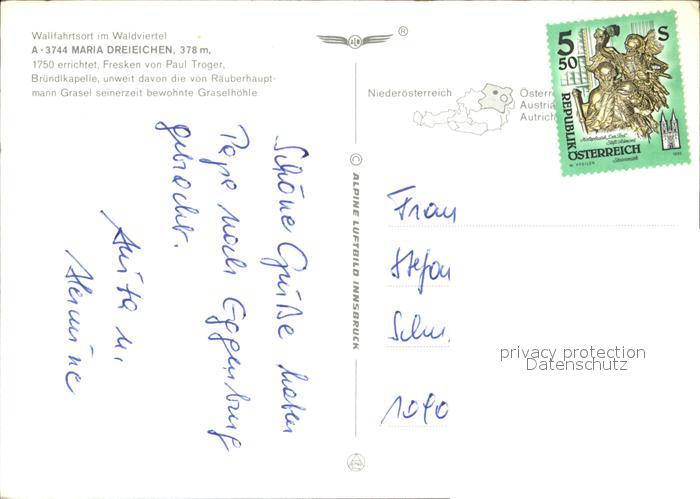 Wallfahrtsort im Waldviertel
A-3744 MARIA DREIEICHEN, 378 m,
1750 errichtet, Fresken von Paul Troger,
Bründlkapelle, unweit davon die von Räuberhaupt-
mann Grasel seinerzeit bewohnte Graselhöhle
®
Niederösterreich
Österre
Austria
Autrich
5 50 S
REPUBLIK
ÖSTERREICH
Steiermark
© ALPINE LUFTBILD INNSBRUCK
Schöne Grüße haben
Papa nach Eggenburg
gebracht.
Anita u.
Hermine
Frau
Stefan
Schu
1040
privacy protection
Datenschutz